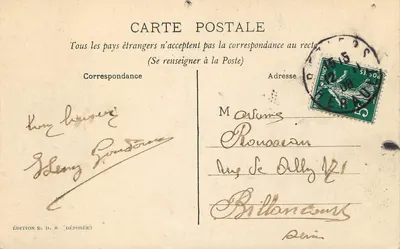 CARTE POSTALE
Tous les pays étrangers n'acceptent pas la correspondance au recto
(Se renseigner à la Poste)
Correspondance
Adresse
Bon baiser
Henry
M
Rousseau
rue de Silly 171
Billancourt
Seine
HERAULT
5
ÉDITION
(DÉPOSÉE)